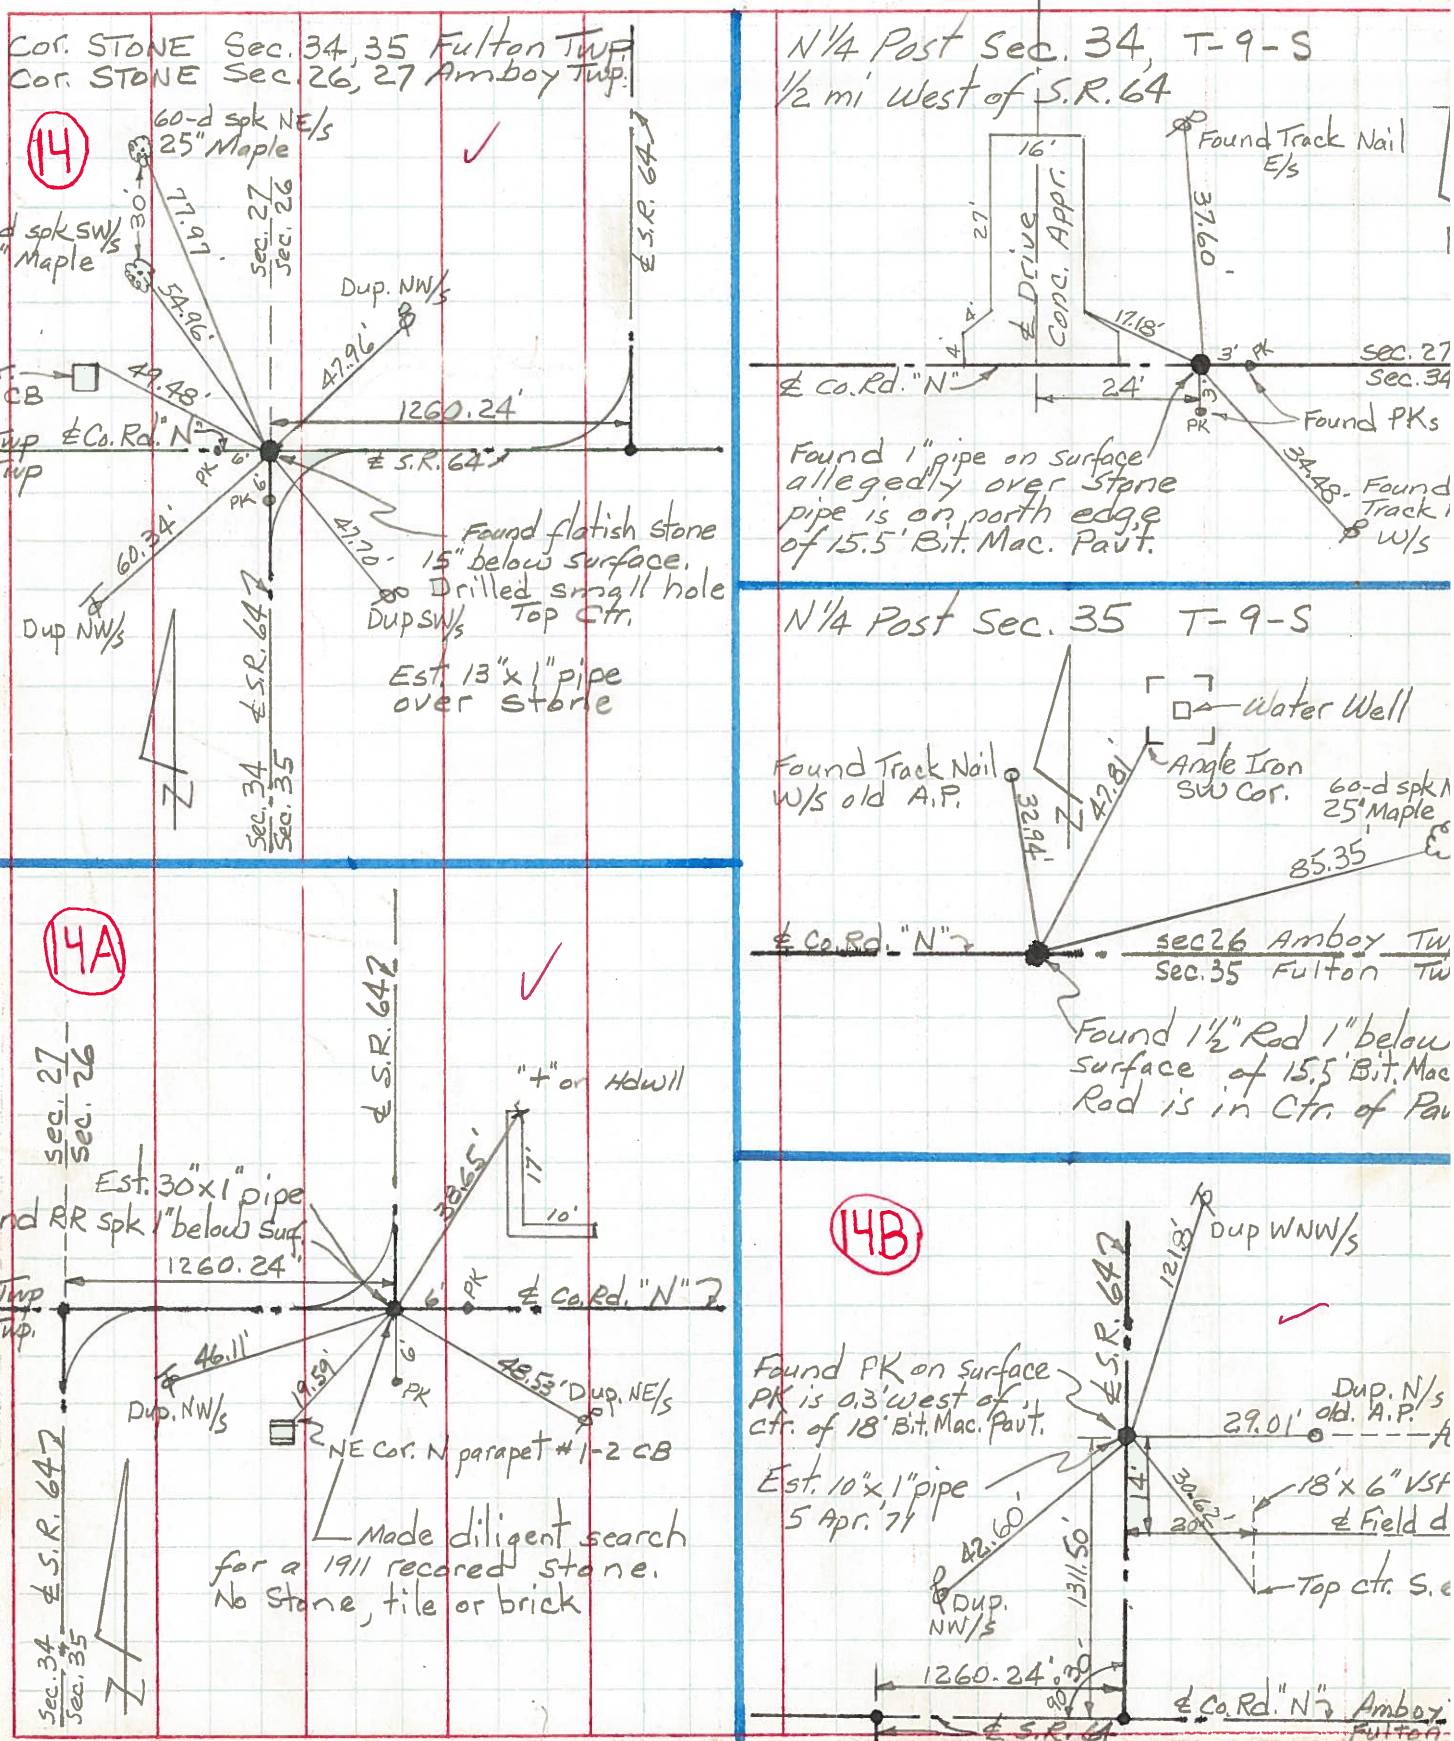 Cor. STONE Sec. 34, 35 Fulton Twp
Cor. STONE Sec. 26, 27 Amboy Twp.
14
60-d spk NE/s
25" Maple
30'
77.97'
d spk SW/s
" Maple
54.96'
Sec. 27
Sec. 26
Dup. NW/s
47.96'
℄ S.R. 64
CB
49.48'
1260.24'
Twp
Twp
℄ Co. Rd. "N"
PK
6'
PK
6'
℄ S.R. 64
60.34'
Dup NW/s
47.70'
Dup SW/s
Found flatish stone
15" below surface.
Drilled small hole
Top Ctr.
Est. 13" x 1" pipe
over stone
℄ S.R. 64
Sec. 34
Sec. 35
N
14A
Sec. 27
Sec. 26
℄ S.R. 64
"+" on Hdwll
38.65'
17'
10'
Est. 30" x 1" pipe
nd RR spk 1" below Surf.
1260.24'
Twp
Twp.
6'
PK
℄ Co. Rd. "N"
46.11'
Dup. NW/s
19.59'
6'
PK
48.53'
Dup. NE/s
NE Cor. N parapet #1-2 CB
Made diligent search
for a 1911 recored stone.
No Stone, tile or brick
℄ S.R. 64
Sec. 34
Sec. 35
N
N 1/4 Post Sec. 34, T-9-S
1/2 mi West of S.R. 64
16'
27'
℄ Drive
Conc. Appr.
4'
4'
Found Track Nail
E/s
37.60'
17.18'
3'
PK
Sec. 27
Sec. 34
℄ Co. Rd. "N"
24'
3'
PK
Found PKs
Found 1" pipe on surface
allegedly over stone
pipe is on north edge
of 15.5' Bit. Mac. Pavt.
34.48'
Found
Track
W/s
N 1/4 Post Sec. 35 T-9-S
Water Well
Found Track Nail
W/s old A.P.
32.94'
N
47.81'
Angle Iron
SW Cor.
60-d spk N
25" Maple
85.35'
℄ Co. Rd. "N"
Sec 26 Amboy Tw
Sec. 35 Fulton Tw
Found 1 1/2" Rod 1" below
surface of 15.5' Bit. Mac
Rod is in Ctr. of Pav
14B
℄ S.R. 64
121.8'
Dup WNW/s
Found PK on surface
PK is 0.3' west of
Ctr. of 18' Bit. Mac. Pavt.
Est. 10" x 1" pipe
5 Apr. '71
29.01'
Dup. N/s
old A.P.
14'
30.62'
20'
18' x 6" VSP
℄ Field d
Top ctr. S. e
42.60'
Dup.
NW/s
1311.50'
1260.24'
90°30'
℄ Co. Rd. "N"
Amboy
Fulton
℄ S.R. 64